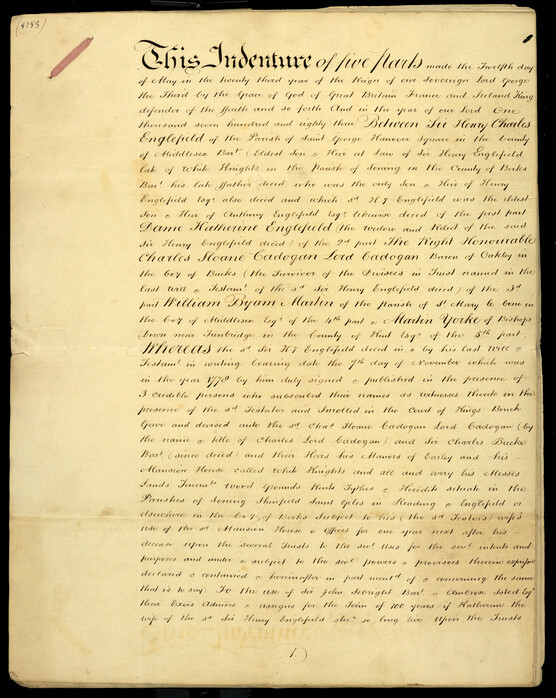 (4753)
This Indenture of five parts made the Twelfth day
of May in the twenty third year of the Reign of our Sovereign Lord George
the Third by the Grace of God of Great Britain France and Ireland King
defender of the ffaith and so forth And in the year of our Lord One
thousand seven hundred and eighty three Between Sir Henry Charles
Englefield of the Parish of Saint George Hanover Square in the County
of Middlesex Bart. (Eldest Son & Heir at Law of Sir Henry Englefield
late of White Knights in the Parish of Sonning in the County of Berks
Bart. his late ffather deced who was the only Son & Heir of Henry
Englefield Esqr. also deced and which sd. H y Englefield was the eldest
Son & Heir of Anthony Englefield Esqr. likewise deced of the first part
Dame Katherine Englefield the widow and Relict of the said
Sir Henry Englefield deced) of the 2nd part The Right Honourable
Charles Sloane Cadogan Lord Cadogan Baron of Oakley in
the Coy of Bucks (the Survivor of the Devisees in Trust named in the
last Will & Testamt. of the sd. Sir Henry Englefield deced) of the 3rd
part William Byam Martin of the Parish of St. Mary le bone in
the Coy of Middlesex Esqr. of the 4th part & Martin Yorke of Bishops
Down near Tunbridge in the County of Kent Esqr. of the 5th part
Whereas the sd. Sir H y Englefield deced in & by his last Will &
Testamt. in writing bearing date the 7th day of November which was
in the year 1778 by him duly signed & published in the presence of
3 credible persons who subscribed their names as witnesses thereto in the
presence of the sd. Testator and Inrolled in the Court of Kings Bench
Gave and devised unto the sd. Chas. Sloane Cadogan Lord Cadogan (by
the name & title of Charles Lord Cadogan) and Sir Charles Bucke
Bart. (since deced) and their Heirs his Manors of Earley and his
Mansion House called White Knights and all and every his Messes
Lands Tenemts. Wood Grounds Rents Tythes & Heredits situate in the
Parishes of Sonning Shinfield Saint Giles in Reading & Englefield or
elsewhere in the Coy of Berks Subject to his (the sd. Testors) wife's
use of the sd. Mansion House & Offices for one year next after his
decease upon the several Trusts to the sevl. Uses for the sevl. intents and
purposes and under & subject to the sevl. powers & provisoes therein expressed
declared & contained & hereinafter in part mentd. of & concerning the same
that is to say) To the use of Sir John Sebright Bart. & Ambrose Isted Esqr.
their Exors Admors & assigns for the Term of 100 years if Katherine the
wife of the sd. Sir Henry Englefield shod. so long live Upon the Trusts
1.